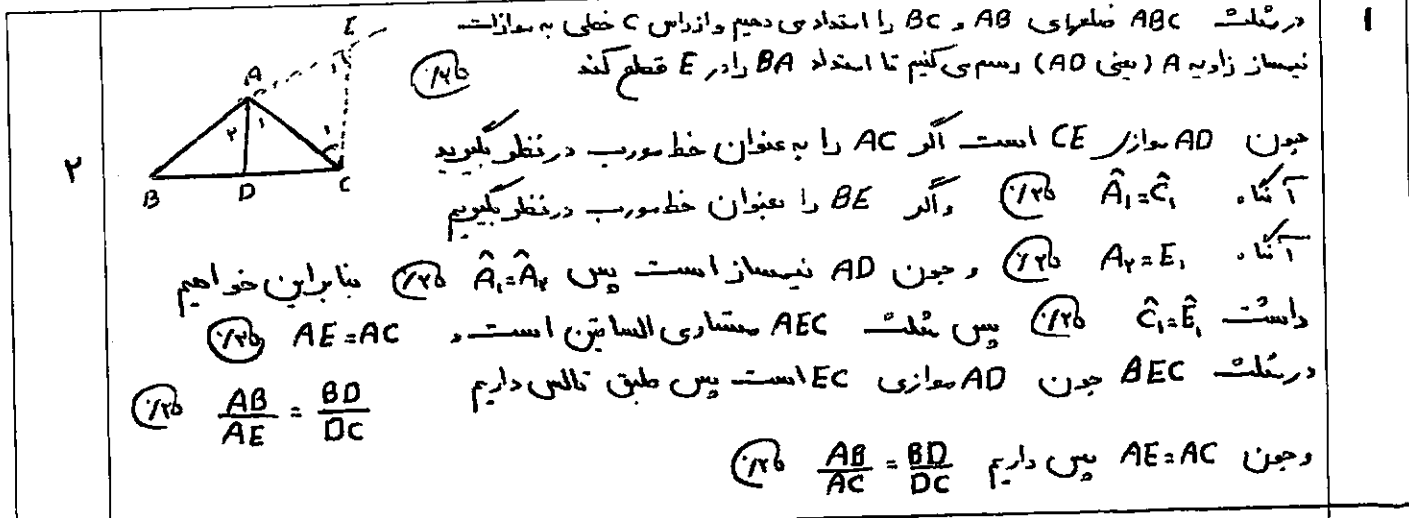 ۱
در مثلث ABC ضلعهای AB و BC را امتداد می دهیم و از راس C خطی به موازات
نیمساز زاویه A (یعنی AD) رسم می کنیم تا امتداد BA را در E قطع کند ۰/۲۵
چون AD موازی CE است اگر AC را به عنوان خط مورب در نظر بگیرید
آنگاه Â₁=Ĉ₁ ۰/۲۵ و اگر BE را بعنوان خط مورب در نظر بگیریم
آنگاه A₂=E₁ ۰/۲۵ و چون AD نیمساز است پس Â₁=Â₂ ۰/۲۵ بنابراین خواهیم
داشت Ĉ₁=Ê₁ ۰/۲۵ پس مثلث AEC متساوی الساقین است و AE=AC ۰/۲۵
در مثلث BEC چون AD موازی EC است پس طبق تالس داریم AB/AE = BD/DC ۰/۲۵
و چون AE=AC پس داریم AB/AC = BD/DC ۰/۲۵
۲
E
۱
A
۲ ۱
۱
B D C